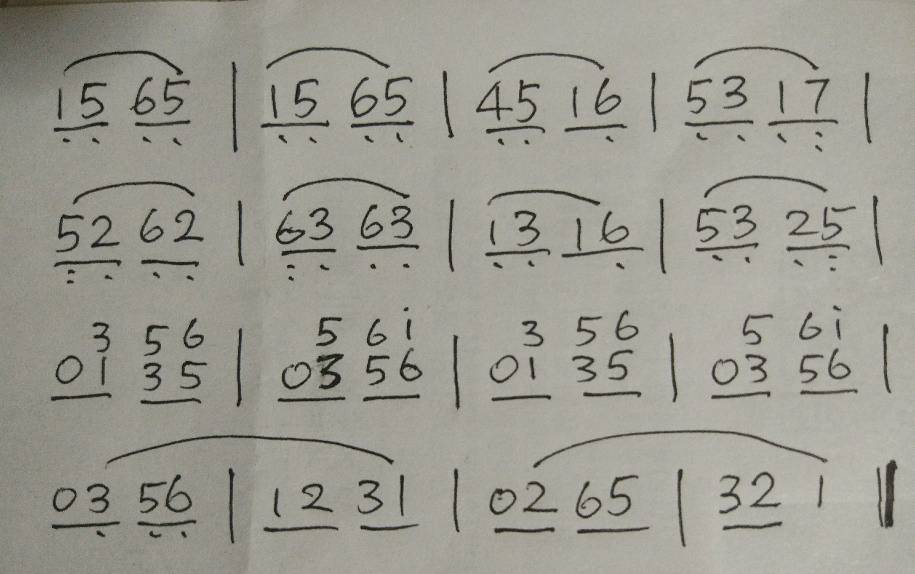 15 65 | 15 65 | 45 16 | 53 17 |
52 62 | 63 63 | 13 16 | 53 25 |
3 56 | 5 6i | 3 56 | 5 6i |
01 35 | 03 56 | 01 35 | 03 56 |
03 56 | 12 31 | 02 65 | 32 1 ‖